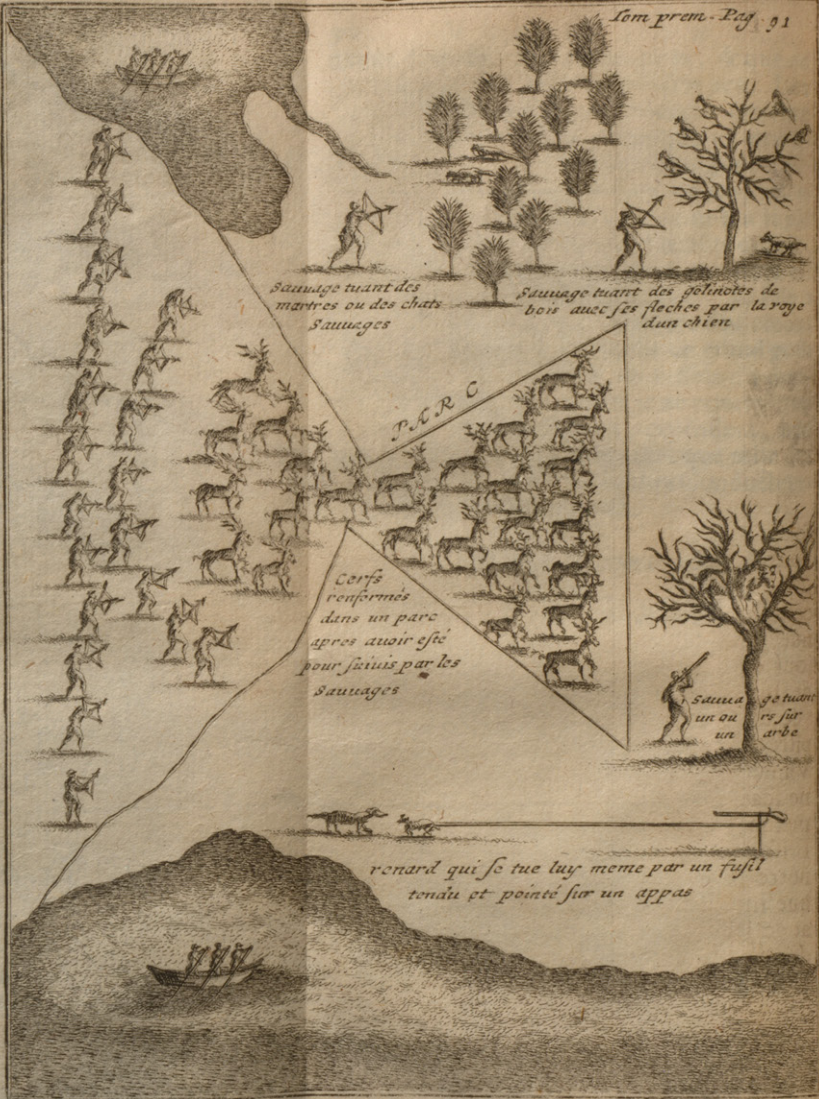 Tom prem. Pag 91
Sauuage tuant des
martres ou des chats
Sauuages
Sauuage tuant des gelinotes de
bois auec ses fleches par la voye
dun chien
PARC
Cerfs
renformés
dans un parc
apres auoir esté
pour suiuis par les
Sauuages
Sauuage tuant
un ours sur
un arbe
renard qui se tue luy meme par un fusil
tendu et pointé sur un appas